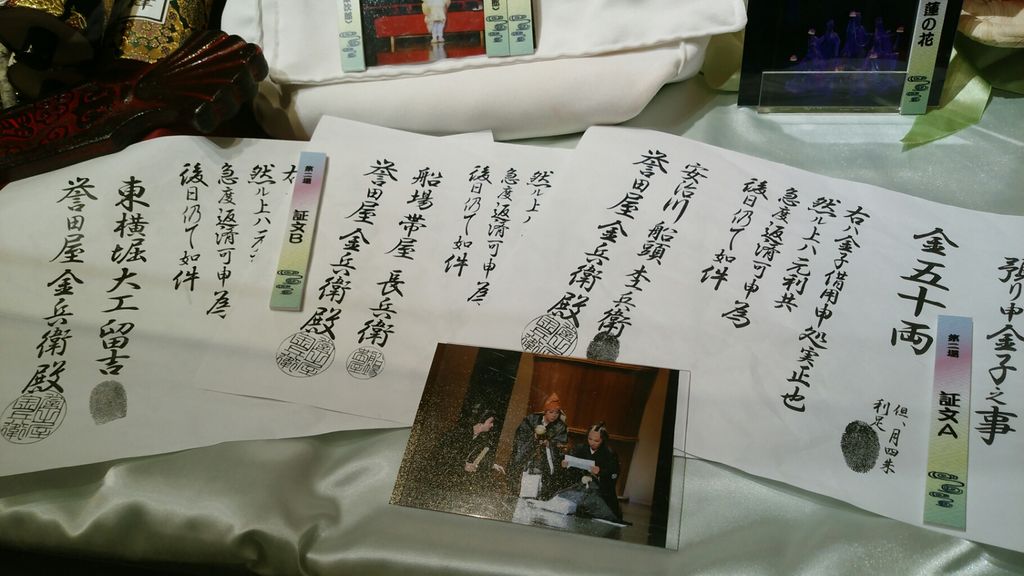 預り申金子之事
金五十両
但、月四朱
利足
右ハ金子借用申処実正也
然ル上ハ元利共
急度返済可申為
後日仍て如件
安治川 船頭 杢兵衛
誉田屋 金兵衛 殿
然ル上ハ
急度返済可申為
後日仍て如件
船場 帯屋 長兵衛
誉田屋 金兵衛 殿
右
然ル上ハ元
急度返済可申為
後日仍て如件
東横堀 大工 留吉
誉田屋 金兵衛 殿
第二場 証文A
第二場 証文B
蓮の花